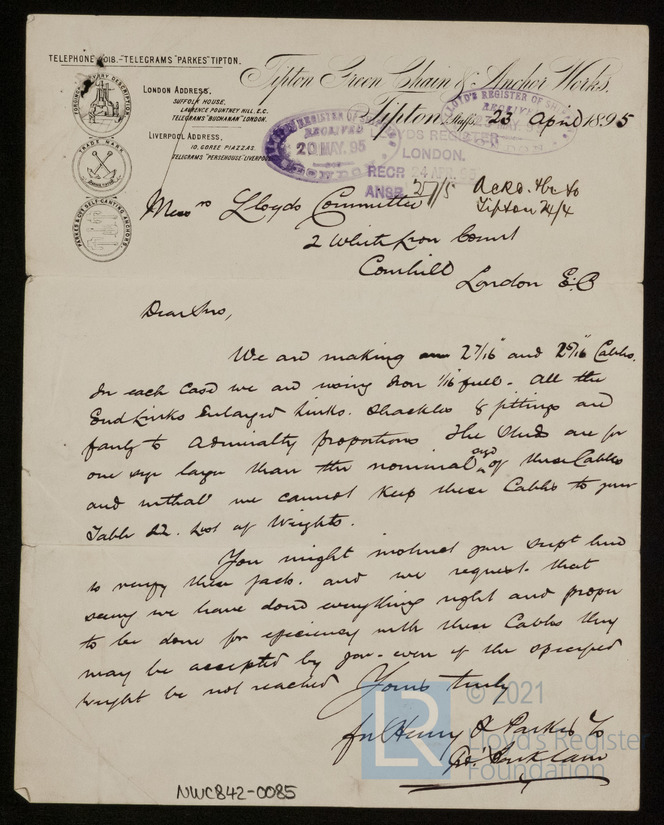 TELEPHONE 5018.–TELEGRAMS "PARKES" TIPTON.
Tipton Green Chain & Anchor Works,
LONDON ADDRESS,
SUFFOLK HOUSE,
LAURENCE POUNTNEY HILL, E.C.
TELEGRAMS "BUCHANAN" LONDON.
LIVERPOOL ADDRESS,
10, GOREE PIAZZAS.
TELEGRAMS "PERSEHOUSE" LIVERPOOL
TRADE MARK
PARKES & CO'S SELF-CANTING ANCHORS.
Tipton, Staffs. 23 April 1895
LLOYD'S REGISTER OF
RECEIVED
20 MAY. 95
LONDON
LLOYD'S REGISTER OF
RECEIVED
MAY. 95
LONDON
LLOYDS REGISTER
LONDON.
RECR 24 APR. 95
ANSR. 27/5
Tipton 24/4
Messrs Lloyds Committee
2 White Lion Court
Cornhill
London E.C
Dear Sirs,
We are making 2 7/16" and 2 5/16" Cables.
In each case we are using Iron 1/16 full. All the
End Links Enlarged Links. Shackles & fittings are
fairly to Admiralty proportions The Studs are for
one size larger than the nominal size of these Cables
and withall we cannot keep these Cables to your
Table 22. List of Weights.
You might instruct your Supt here
to verify these facts. and we request. that
seeing we have done everything right and proper
to be done for efficiency with these Cables they
may be accepted by you. even if the specified
weight be not reached
Yours truly
for Henry P Parkes & Co
NWC842-0085
© 2021
LR
Lloyd's Register
Foundation